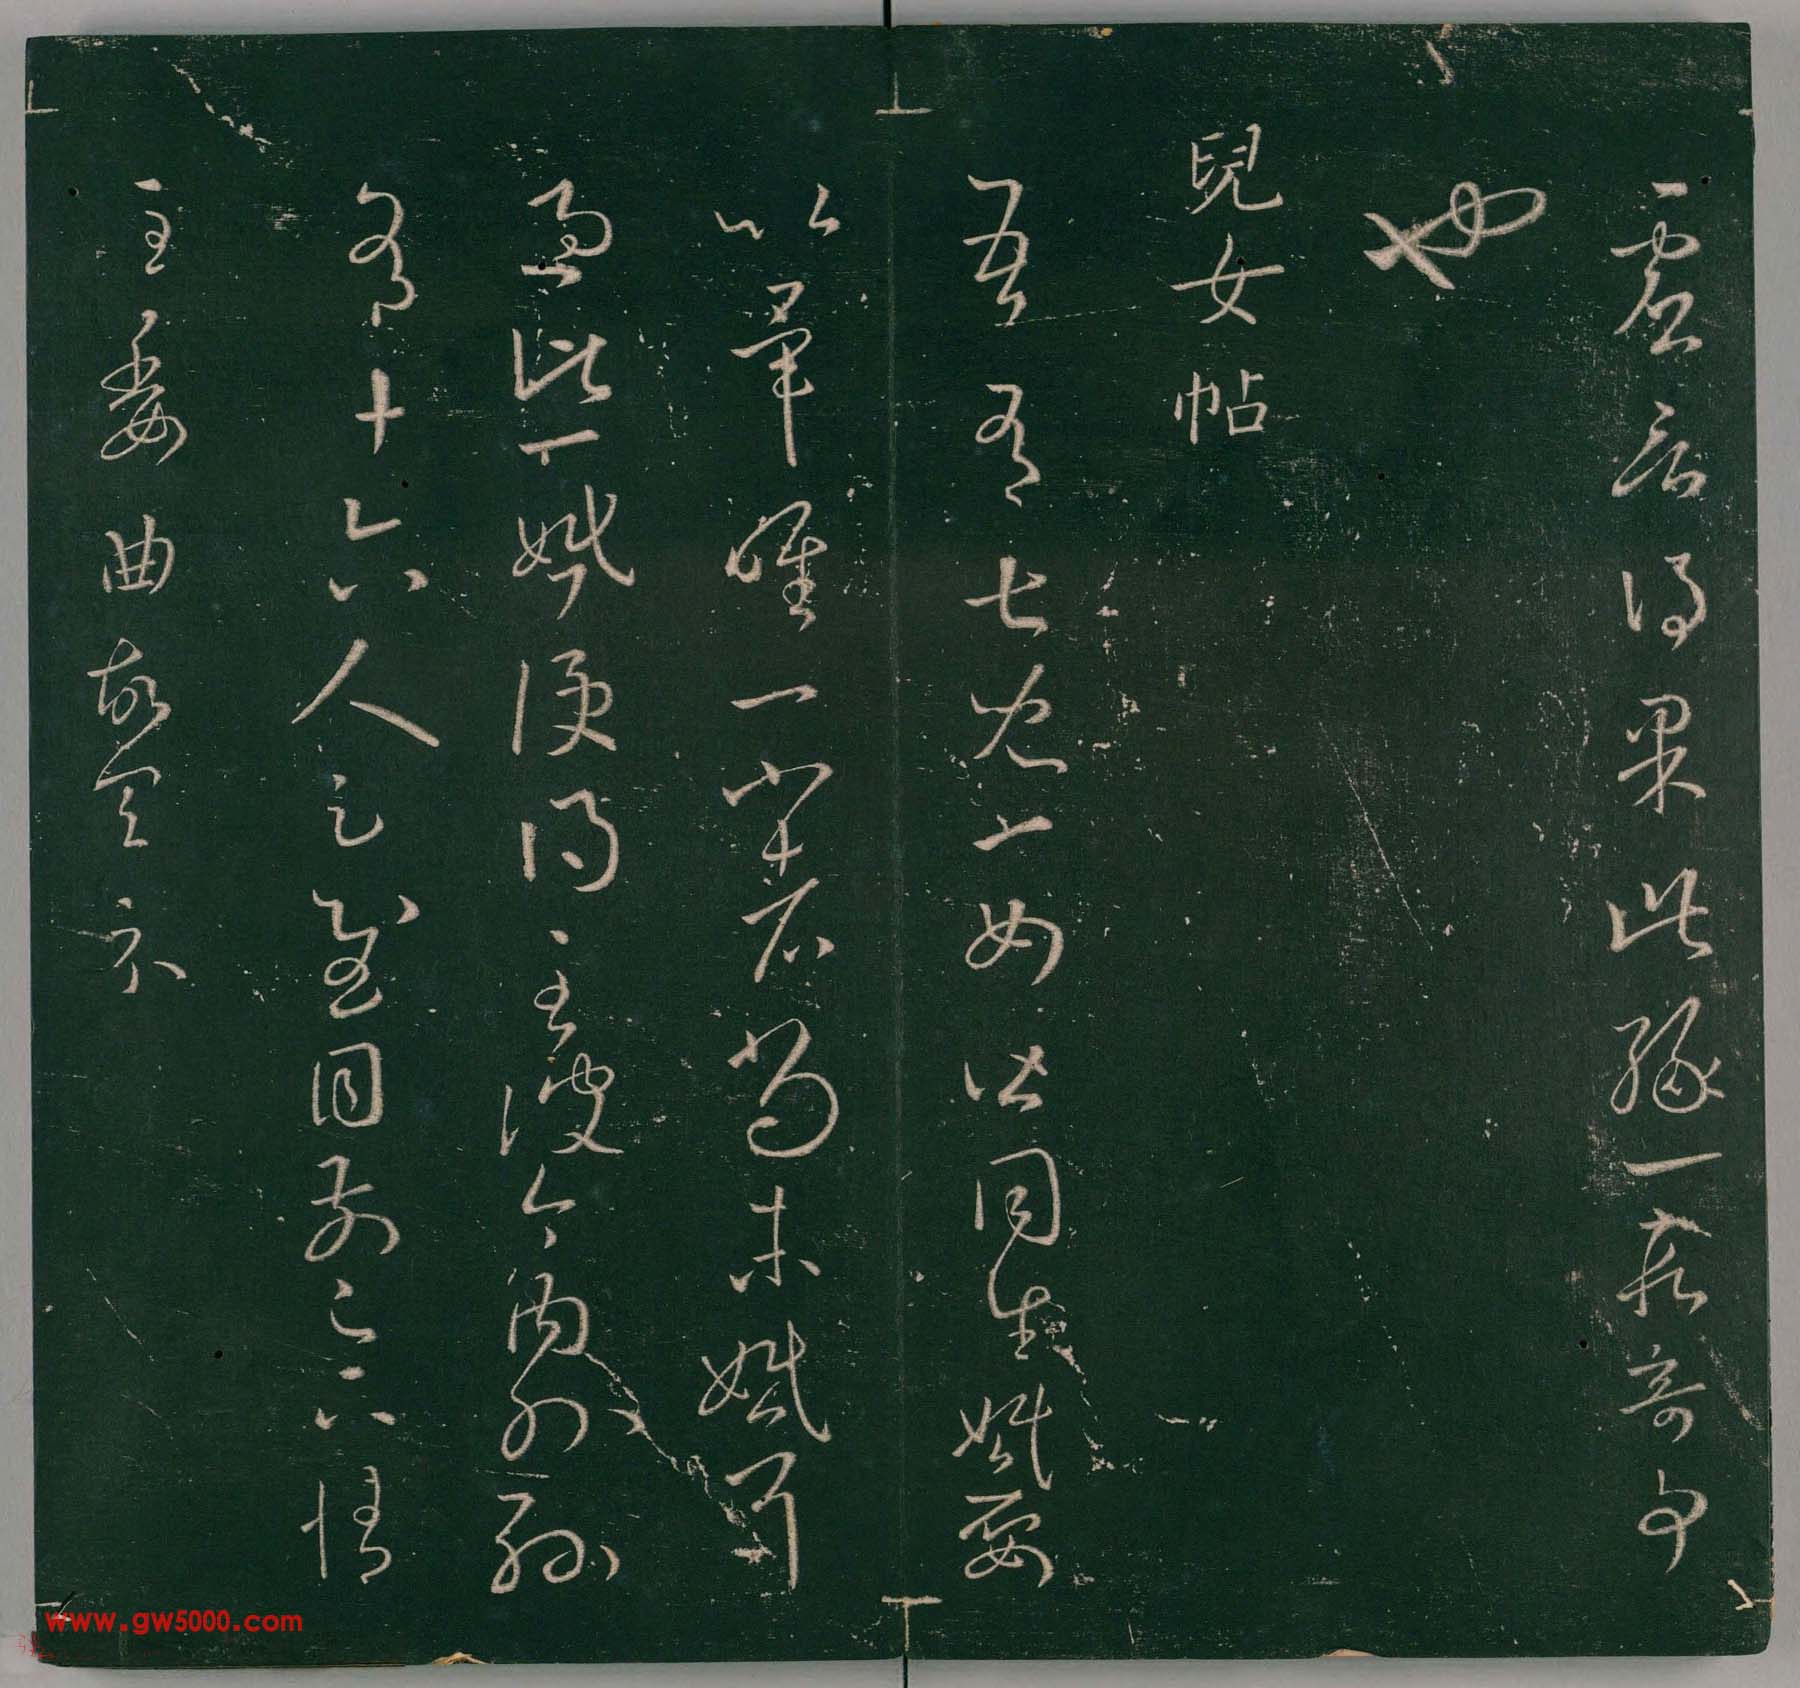 虛言得果此緣一段奇事
也
兒女帖
吾有七兒一女皆同生婚娶
以畢唯一小者尚未婚耳
過此一婚便得至彼今內外孫
有十六人足慰目前足下情
至委曲故具示
www.gw5000.com